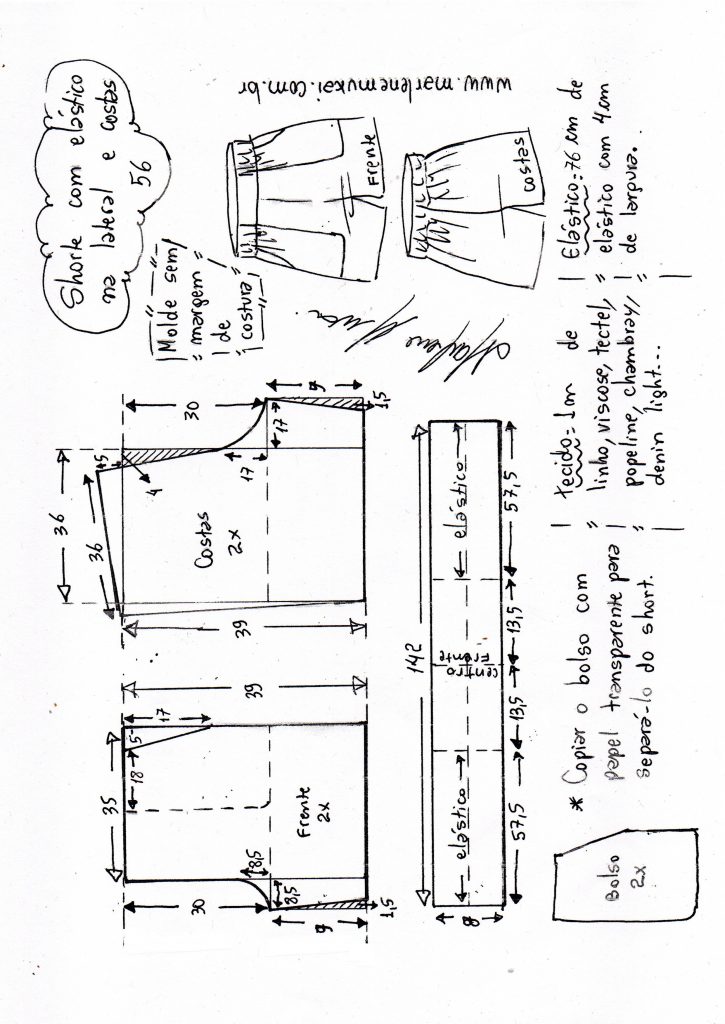 Shorte com elástico
na lateral e costas
56
www.marlenemukai.com.br
Molde sem
margem
de
costura
Frente
costas
Marlene Mukai
35
17
5
18
39
Frente
2x
8,5
8,5
30
9
1,5
36
36
5
4
30
17
17
9
1,5
39
Costas
2x
142
elástico
centro
Frente
elástico
57,5
13,5
13,5
57,5
8
Bolso
2x
* Copiar o bolso com
papel transparente para
separá-lo do short.
tecido=1m de
linho, viscose, tectel,
popeline, chambray,
denin light...
Elástico=76 cm de
elástico com 4cm
de largura.